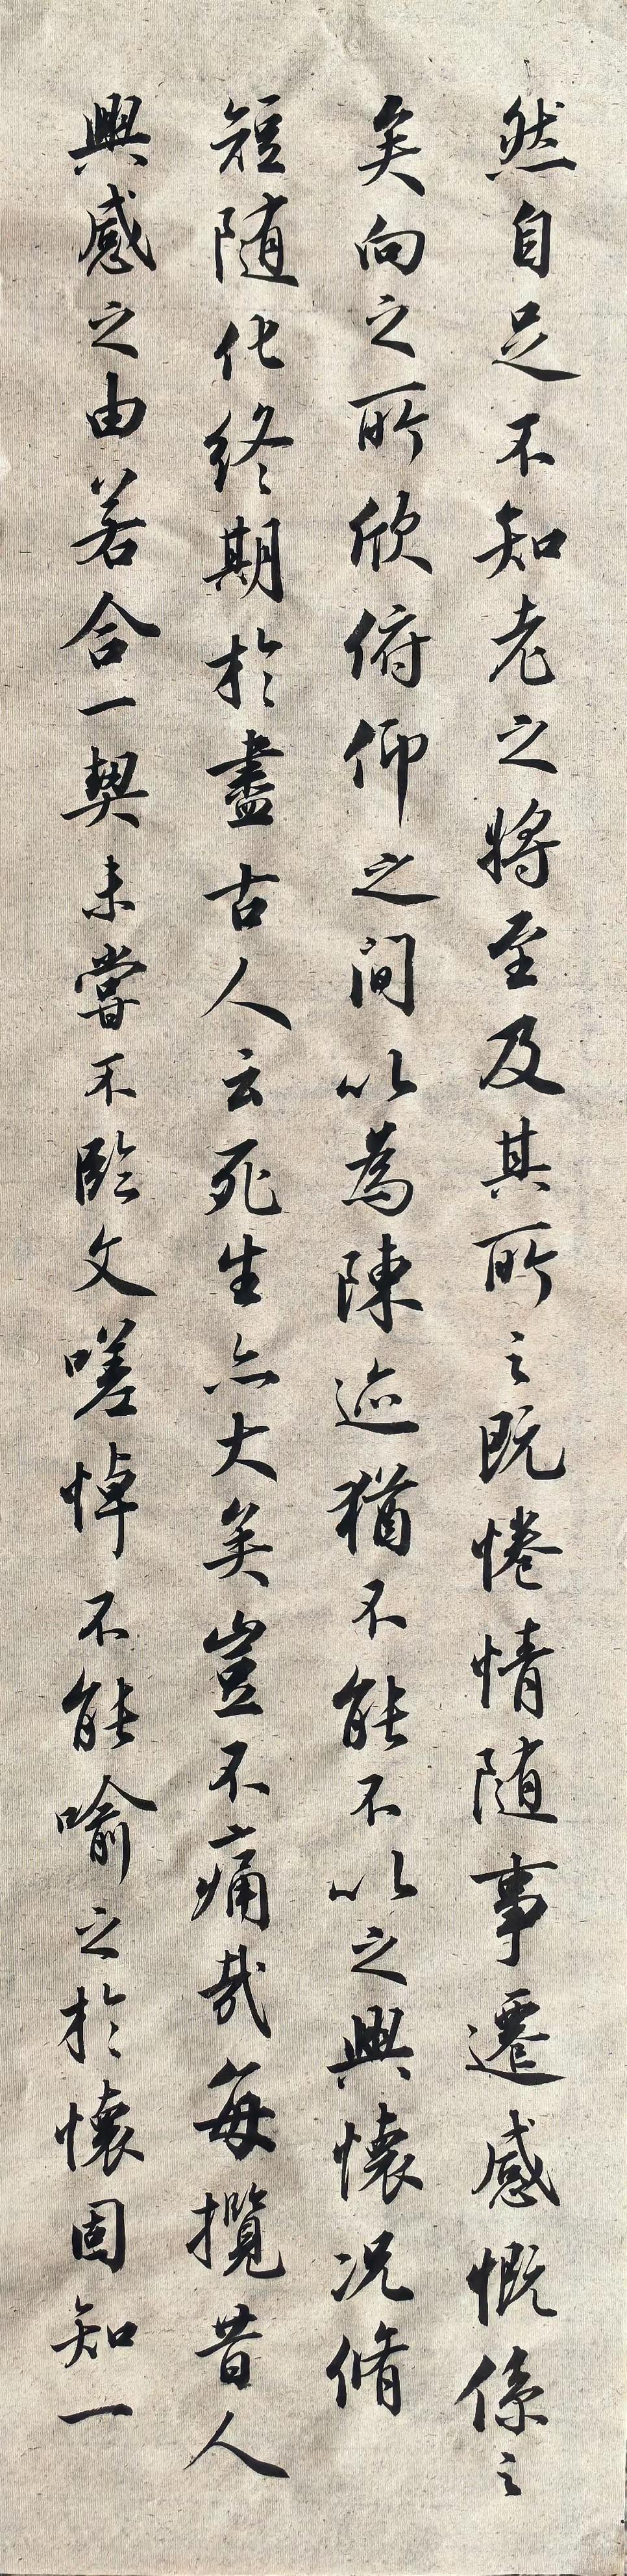 然自足不知老之將至及其所之既惓情随事遷感慨係之
矣向之所欣俯仰之间以為陳迹猶不能不以之興懷况脩
短随化終期於盡古人云死生亦大矣豈不痛哉每攬昔人
興感之由若合一契未嘗不臨文嗟悼不能喻之於懷固知一